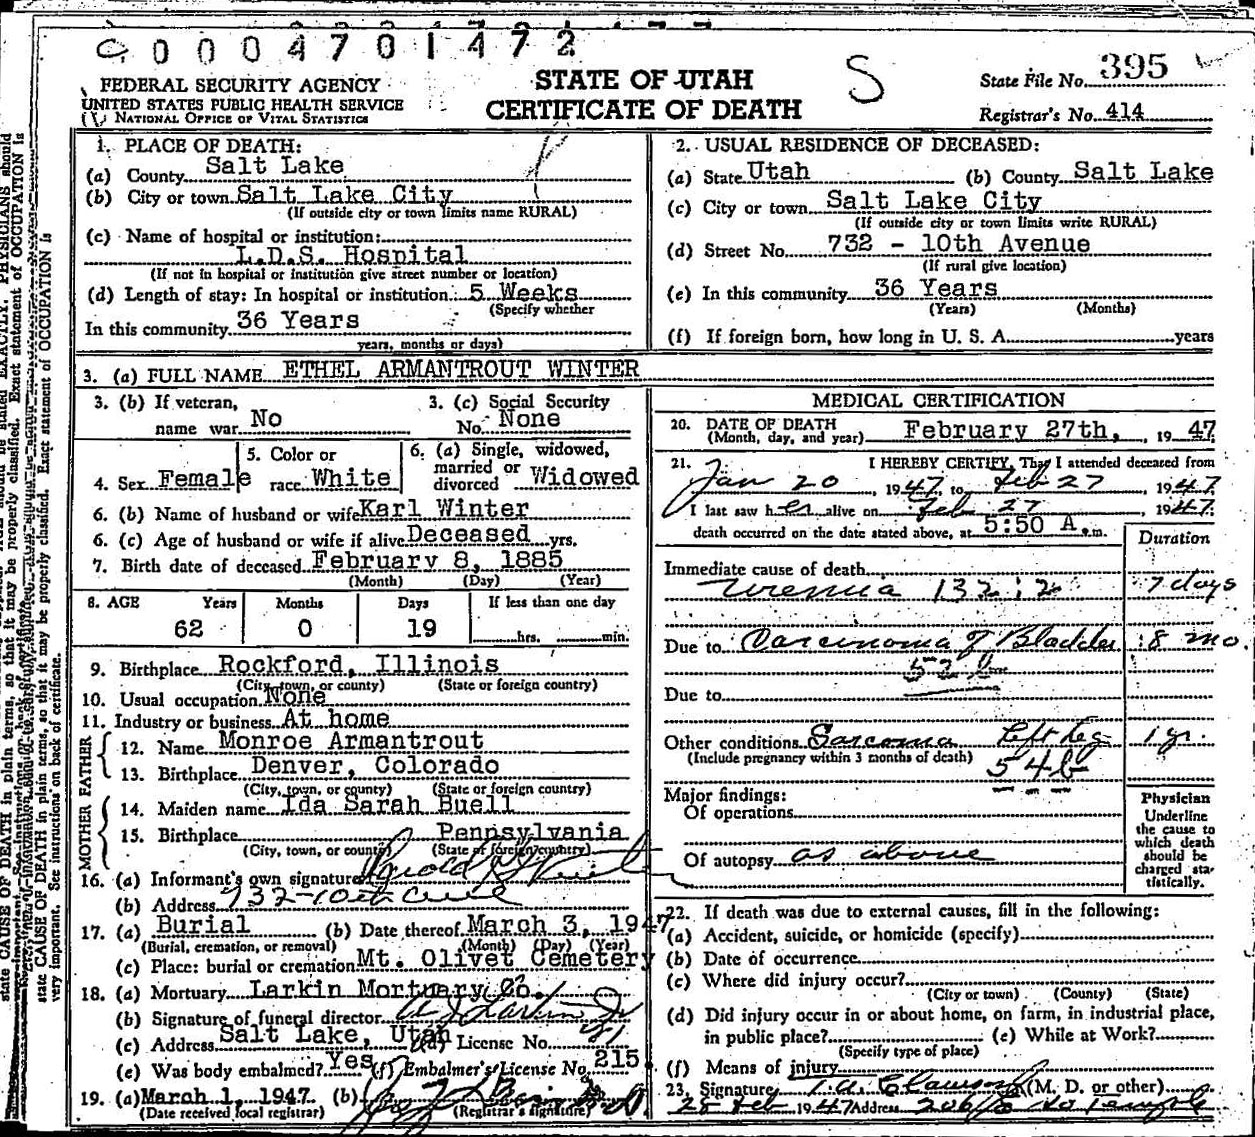 0 0 0 4 7 0 1 4 7 2
FEDERAL SECURITY AGENCY
UNITED STATES PUBLIC HEALTH SERVICE
NATIONAL OFFICE OF VITAL STATISTICS
STATE OF UTAH
CERTIFICATE OF DEATH
S
State File No. 395
Registrar's No. 414
1. PLACE OF DEATH:
(a) County Salt Lake
(b) City or town Salt Lake City
(If outside city or town limits name RURAL)
(c) Name of hospital or institution:
L.D.S. Hospital
(If not in hospital or institution give street number or location)
(d) Length of stay: In hospital or institution: 5 Weeks
(Specify whether
In this community 36 Years
years, months or days)
2. USUAL RESIDENCE OF DECEASED:
(a) State Utah (b) County Salt Lake
(c) City or town Salt Lake City
(If outside city or town limits write RURAL)
(d) Street No. 732 - 10th Avenue
(If rural give location)
(e) In this community 36 Years
(Years) (Months)
(f) If foreign born, how long in U. S. A. years
3. (a) FULL NAME ETHEL ARMANTROUT WINTER
3. (b) If veteran, name war No
3. (c) Social Security No. None
4. Sex Female
5. Color or race White
6. (a) Single, widowed, married or divorced Widowed
6. (b) Name of husband or wife Karl Winter
6. (c) Age of husband or wife if alive Deceased yrs.
7. Birth date of deceased February 8, 1885
(Month) (Day) (Year)
8. AGE Years Months Days If less than one day
62 0 19 hrs. min.
9. Birthplace Rockford, Illinois
(City, town, or county) (State or foreign country)
10. Usual occupation None
11. Industry or business At home
FATHER
12. Name Monroe Armantrout
13. Birthplace Denver, Colorado
(City, town, or county) (State or foreign country)
MOTHER
14. Maiden name Ida Sarah Buell
15. Birthplace Pennsylvania
(City, town, or county) (State or foreign country)
16. (a) Informant's own signature
(b) Address 732-10th Ave
17. (a) Burial (b) Date thereof March 3, 1947
(Burial, cremation, or removal) (Month) (Day) (Year)
(c) Place: burial or cremation Mt. Olivet Cemetery
18. (a) Mortuary Larkin Mortuary Co.
(b) Signature of funeral director
(c) Address Salt Lake, Utah (d) License No.
(e) Was body embalmed? Yes (f) Embalmer's License No. 215
19. (a) March 1, 1947 (b)
(Date received local registrar) (Registrar's signature)
MEDICAL CERTIFICATION
20. DATE OF DEATH
(Month, day, and year) February 27th, , 19 47
21. I HEREBY CERTIFY, That I attended deceased from
Jan 20, 1947, to Feb 27, 1947
I last saw her alive on Feb 27, 1947.
death occurred on the date stated above, at 5:50 A.m.
Duration
Immediate cause of death
Uremia 132:2 7 days
Due to Carcinoma of Bladder 8 mo.
52 b
Due to
Other conditions Sarcoma left leg 1 yr.
(Include pregnancy within 3 months of death) 54b
Major findings:
Of operations
Of autopsy as above
Physician
Underline
the cause to
which death
should be
charged sta-
tistically.
22. If death was due to external causes, fill in the following:
(a) Accident, suicide, or homicide (specify)
(b) Date of occurrence
(c) Where did injury occur?
(City or town) (County) (State)
(d) Did injury occur in or about home, on farm, in industrial place,
in public place? (e) While at Work?
(Specify type of place)
(f) Means of injury
23. Signature (M. D. or other)
28 Feb 1947 Address So Temple
state CAUSE OF DEATH in plain terms, so that it may be properly classified. Exact statement of OCCUPATION is
very important. See instructions on back of certificate.